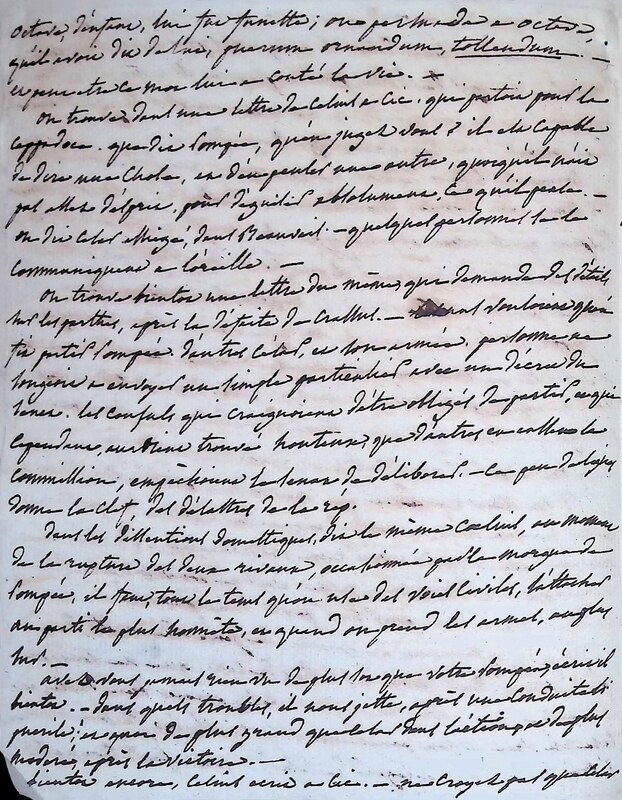 octave, d'enfant, lui fut funeste; on persuada a octave,
qu'il avoit dit de lui, puerum ornandum, tollendum. —
et peut etre ce mot lui a couté la vie. —
on trouve dans une lettre de Celius a Cic. qui partoit pour la
cappadoce. que dit pompée, qu'en jugez vous? il est capable
de dire une chose, et d'en penser une autre, quoiqu'il n'ait
pas assez d'esprit, pour déguiser absolument, ce qu'il pense. —
on dit César assiégé, dans Beauvais. — quelques personnes se le
communiquent a l'oreille. —
on trouve bientot une lettre du même, qui demande des détails
sur les parthes, après la défaite de Crassus. — vouloient qu'on
fit partir pompée d'autres César, et son armée, personne ne
songeoit a envoyer un simple particulier avec un décret du
senat. les consuls qui craignoient d'être obligés de partir, et qui
cependant, auroient trouvé honteux, que d'autres en eussent la
commission, empêchoient le senat de délibérer. — ce peu de lignes
donne la clef, des désastres de la rép.
dans les dissentions domestiques, dit le même Cœlius, au moment
de la rupture des deux rivaux, occasionnée par la morgue de
pompée, il faut, tout le tems qu'on use des voies civiles, s'attacher
au parti le plus honnête, et quand on prend les armes, au plus
sur. —
avez vous jamais rien vu de plus sot que votre pompée, écrit il
bientot. — dans quels troubles, il nous jette, après une conduite si
puerile; et quoi de plus grand que César dans l'action, et de plus
modéré, après la victoire. —
bientot encore, Celius ecrit a Cic. — ne croyez pas que César